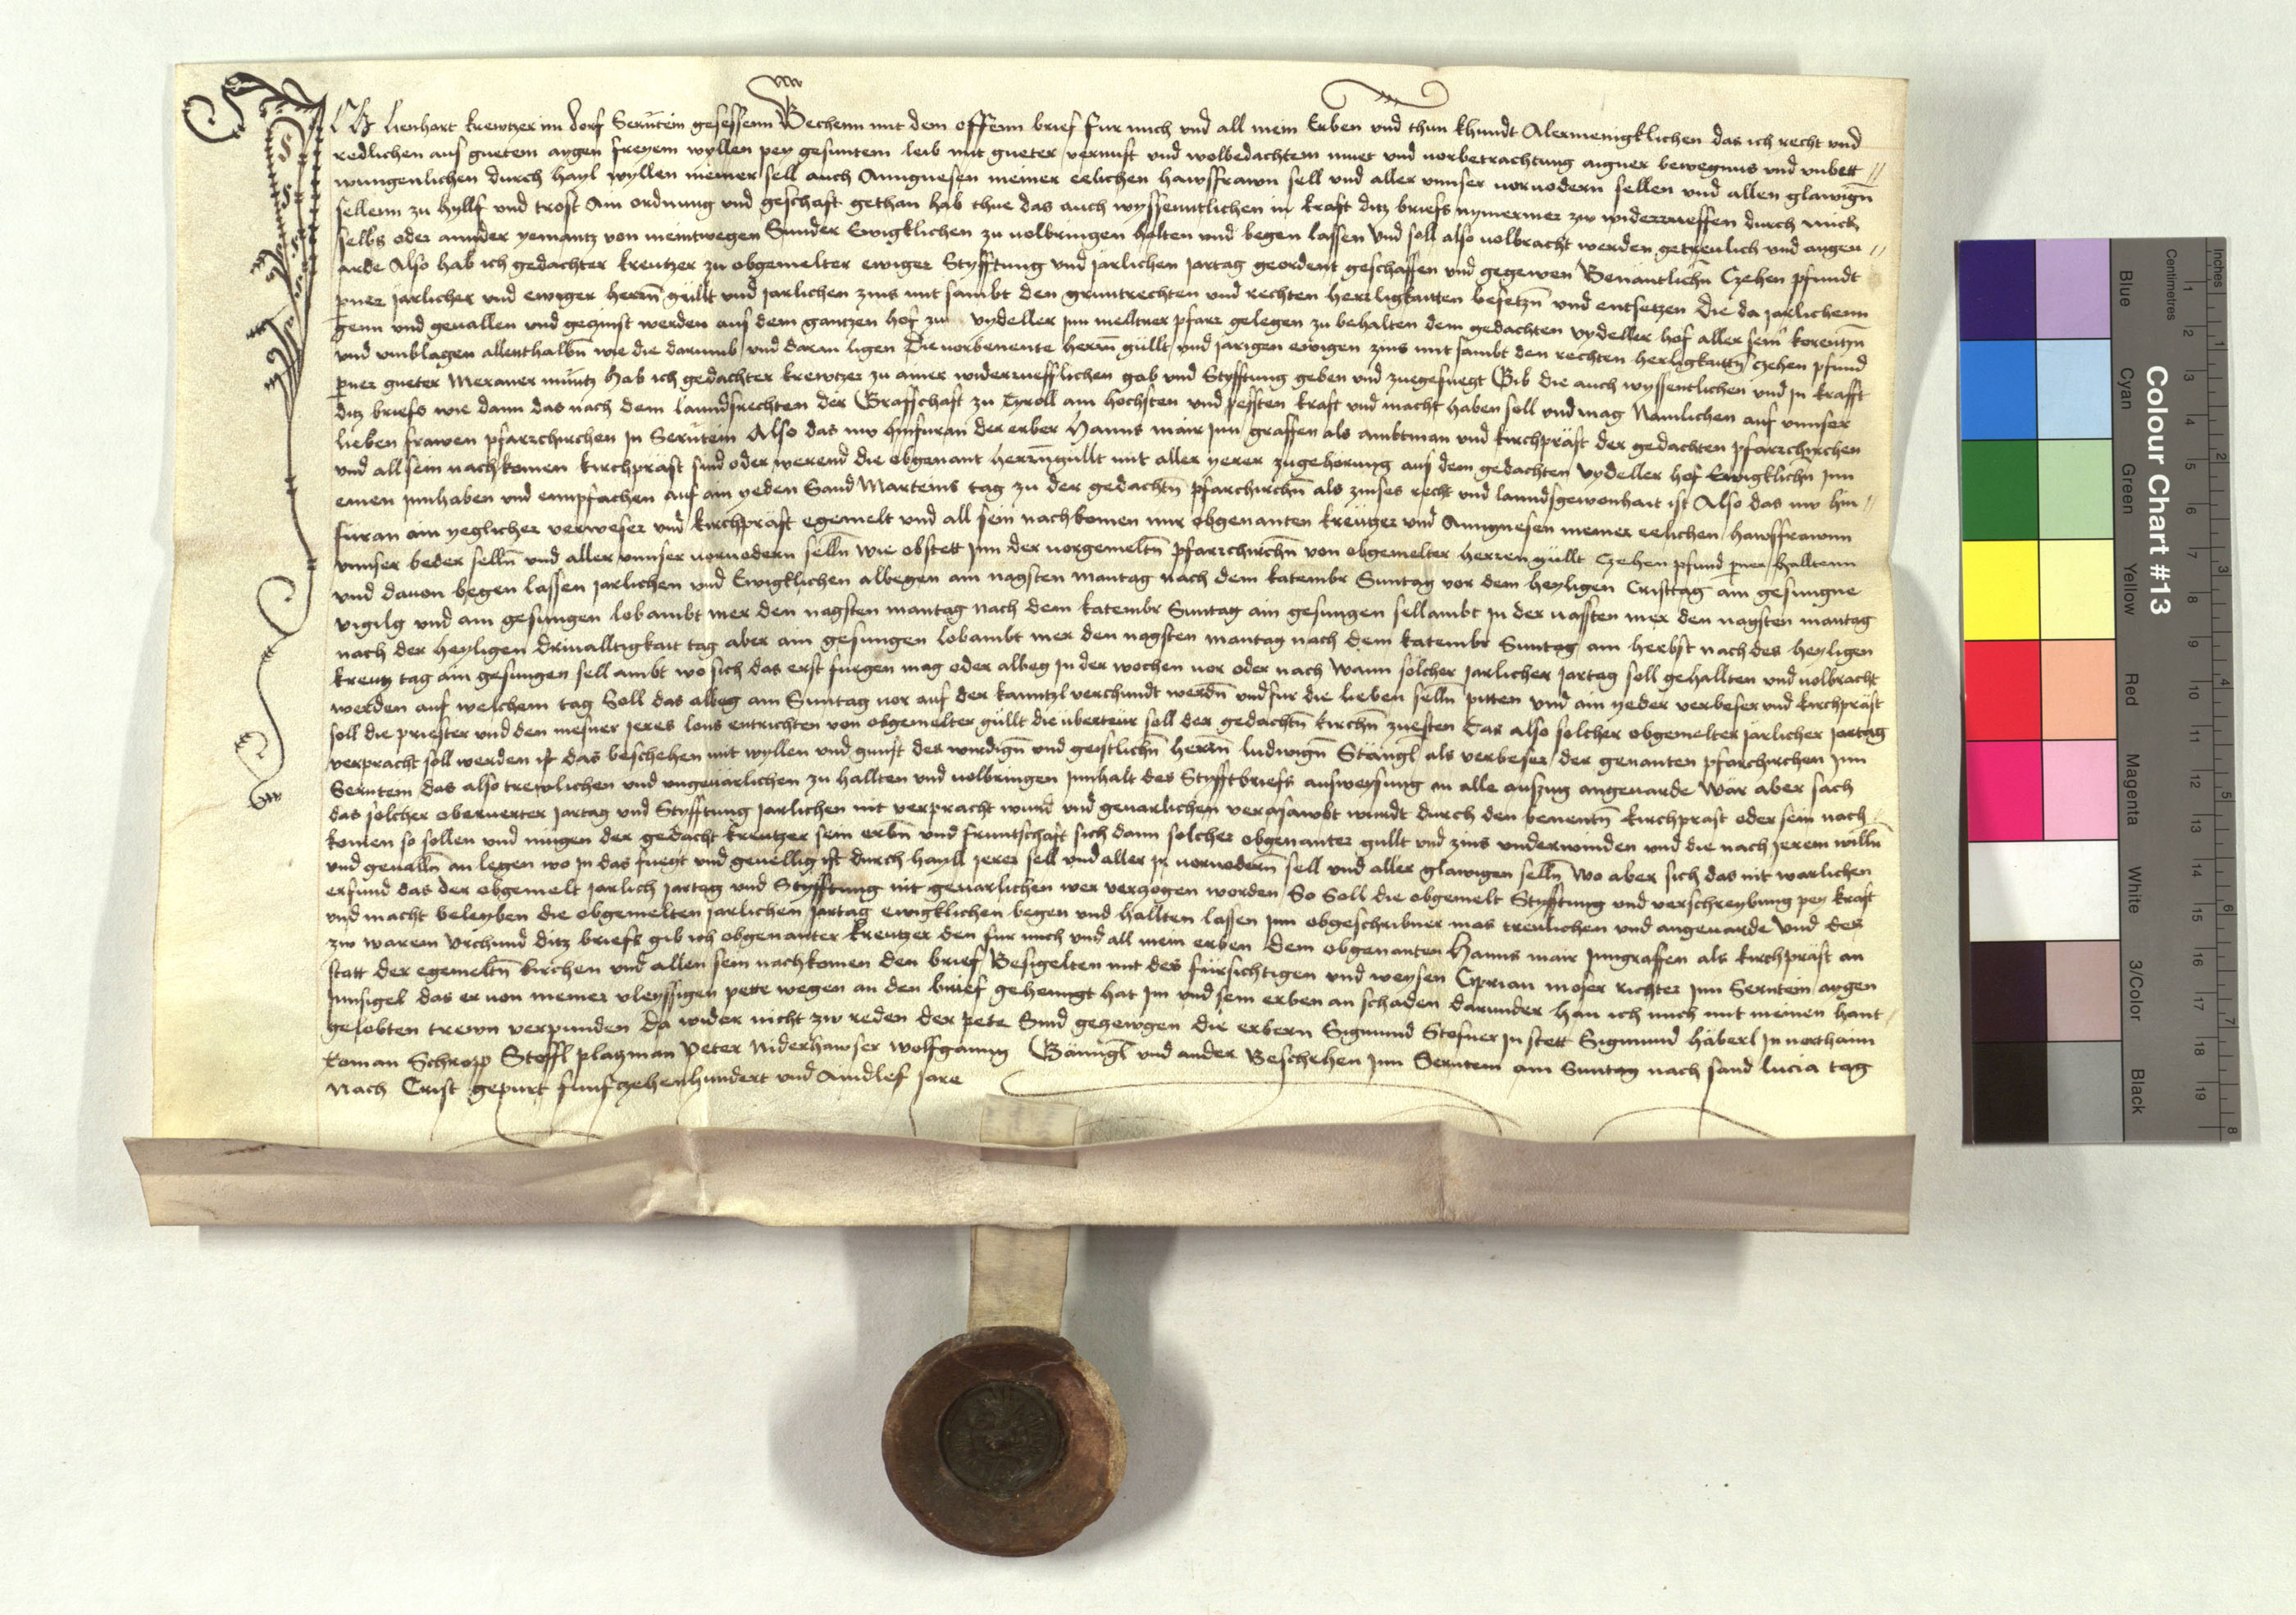 ICh lienhart krewtzer im dorf Serntein gesessenn Bechenn mit dem offenn brief fur mich vnd all mein Erben vnd thun khundt Alermenigklichen das ich recht vnd
redlichen aus guetem aygen freyem wyllen pey gesuntem leib mit gueter vernuft vnd wolbedachtem muet vnd vorbetrachtung aigner bewegnus vnd vnbett //
wungenlichen durch hayl wyllen meiner sell auch Anngnesen meiner eelichen hawsfrawn sell vnd aller vnnser voruodern sellen vnd allen glawign̄
sellenn zu hyllf vnd trost Ain ordnung vnd geschaft gethan hab thue das auch wyssenntlichen in kraft ditz briefs nymermer zw widerrueffen durch mich
selbs oder annder yemantz von meintwegen Sunder Ewigklichen zu uolbringen halten vnd begen lassen vnd soll also uolbracht werden getreulich vnd angeu //
arde Also hab ich gedachter kreutzer zu obgemelter ewiger Styfftung vnd jarlichen jartag geordent geschaffen vnd gegewen Benantlichn̄ Czehen pfundt
perner jarlicher vnd ewiger herrn̄ güllt vnd jarlichen zins mit sambt den gruntrechten vnd rechten herrligkaitten besetzn̄ vnd entsetzen Die da jarlichenn
genn vnd geuallen vnd gezinst werden aus dem gantzen hof zu vydeller inn melltner pfarr gelegen zu behalten dem gedachten vydeller hof aller sein korentzn̄
vnd vmblagen allenthalbn̄ wie die darumb vnd daran ligen Die uorbenente herrn̄ güllt vnd jarigen ewigen zins mit sambt den rechten herligkaittn̄ Czehen pfund
perner gueter Meraner müntz hab ich gedachter krewtzer zu ainer widerruefflichen gab vnd Styfftung geben vnd zuegefuegt Gib die auch wyssentlichen vnd jn krafft
ditz briefs wie dann das nach dem lanndsrechten der Graffschaft zu Tyroll am hochsten vnd pessten kraft vnd macht haben soll vnd mag Namlichen auf vnnser
lieben frawen pfarrchirchen jn Serntein Also das nw hinfuran der erber Hanns mair jnn graffen als ambtman vnd kirchpräst der gedachten pfarrchirchen
vnd all sein nachkomen kirchpräst sind oder werend die obgenant herrngüllt mit aller yerer zugehorung aus dem gedachten vydeller hof Ewigklichn̄ jnn
emen jnnhaben vnd empfachen auf ain yeden Sand Marteins tag zu der gedachtn̄ pfarchirchn̄ als zinses recht vnd lanndsgewonhait ist Also das nw hin //
furan ain yeglicher verweser vnd kirchpräst egemelt vnd all sein nachkomen mir obgenanten kreützer vnd Anngnesen meiner eelichen hawsfrawnn
vnnser beder selln̄ vnd aller vnnser voruodern selln̄ wie obstett jnn der uorgemeltn̄ pfarrchirchn̄ von obgemelter herrengüllt Czehen pfund perner halltenn
vnd dauon begen lassen jarlichen vnd Ewigklichen albegen am nagsten mantag nach dem katembr Suntag vor dem heyligen Cristtag ain gesungne
vigilg vnd ain gesungen lobambt mer den nagsten mantag nach dem katembr Suntag ain gesungen sellambt jn der uassten mer den nagsten mantag
nach der heyligen driualltigkait tag aber ain gesungen lobambt mer den nagsten mantag nach dem katembr Suntag am herbst nach des heyligen
kreutz tag ain gesungen sell ambt wo sich das erst fuegen mag oder albeg jn der wochen vor oder nach Wann solcher jarlicher jartag soll gehallten vnd uolbracht
werden auf welchem tag Soll das albeg am Suntag uor auf der kanntzl verchundt werdn̄ vnd fur die lieben selln pitten vnd ain yeder verbeser vnd kirchpräst
soll die priester vnd den mesner jeres lons entrichten von obgemelter güllt die uberteur soll der gedachtn̄ kirchn̄ zuesten Das also solcher obgemelter jarlicher jartag
verpracht soll werden ist das beschehen mit wyllen vnd gunst des wirdign̄ vnd geistlichn̄ herrn̄ ludwign̄ Stängl als verbeser der genanten pfarchirchen jnn
Serntein das also trewlichen vnd vngeuarlichen zu hallten vnd uolbringen jnnhalt des Styfftbriefs ausweysung an alle auszug angeuarde Wär aber sach
das solcher oberuerter jartag vnd Styfftung jarlichen nit verpracht wurd vnd geuarlichen verasawbt wurdt durch den benentn̄ kirchpräst oder sein nach
komen so sollen vnd mügen der gedacht kreutzer sein erbn̄ vnd fruntschaft sich dann solcher obgenanter gullt vnd zins vnderwinden vnd die nach jerem willn̄
vnd geualln̄ an legen wo jn das fuegt vnd geuellig ist durch hayll jerer sell vnd aller jr voruodern̄ sell vnd aller glawigen selln̄ Wo aber sich das nit warlichen
erfund das der obgemelt jarlich jartag vnd Styfftung nit geuarlichen wer verzogen worden So Soll die obgemelt Styfftung vnd verschreybung pey kraft
vnd macht beleyben die obgemelten jarlichen jartag ewigklichen begen vnd hallten lassen jnn obgeschribner mas treulichen vnd angeuarde vnd des
zw warem vrchund ditz briefs gib ich obgenanter kreutzer den fur mich vnd all mein erben dem obgenanten Hanns mair jnngraffen als kirchpräst an
statt der egemeltn̄ kirchen vnd allen sein nachkomen den brief Besigelten mit des fursichtigen vnd weysen Ciprian moser richter jnn Serntein aygen
jnnsigel das er von meiner vleyssigen pette wegen an den brief gehenngt hat jm vnd sein erben an schaden darunder han ich mich mit meinen hant
gelobten trewn verpunden da wider nicht zw reden der pete Sind gezewgen die erbern Sigmund Stofner jn stett Sigmund häberl jn northaim
Roman Schropp Stoffl platzman Peter Niderhawser wolfganng Gänngl vnd ander Beschehen jnn Serntein am Suntag nach sand lucia tag
Nach Crist gepurt funfczehenhundert vnd Aindlef jare
Colour Chart #13
Blue Cyan Green Yellow Red Magenta White 3/Color Black
Inches 1 2 3 4 5 6 7 8
Centimetres 1 2 3 4 5 6 7 8 9 10 11 12 13 14 15 16 17 18 19